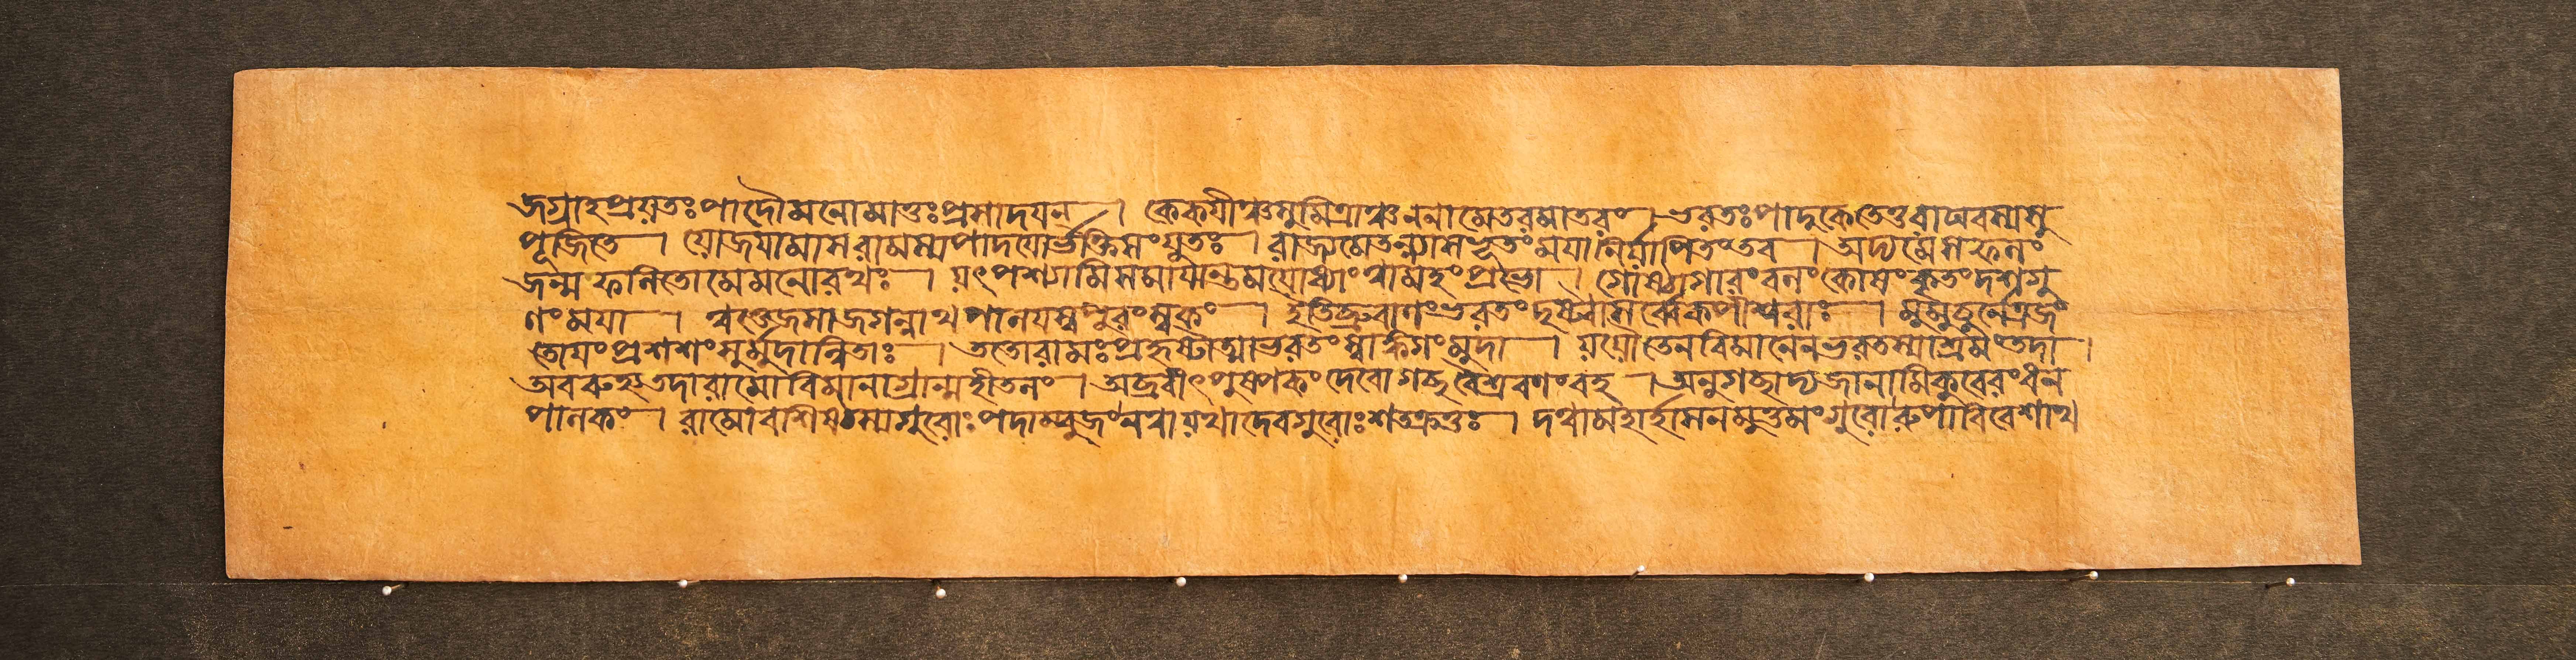 জগ্রাহপ্রয়তঃপাদৌমনোমাতুঃপ্রসাদয়ন্ । কৈকয়ীঞ্চসুমিত্রাঞ্চননামেতরমাতরং । ভরতঃপাদুকেতেতুরাঘবস্যসু
পূজিতে । যোজয়ামাসরামস্যপাদয়োর্ভক্তিসংযুতঃ । রাজ্যমেতন্ন্যাসভূতংময়ানির্য্যাপিতংতব । অদ্যমেসফলং
জন্মফলিতোমেমনোরথঃ । যৎপশ্যামিসমায়ান্তমযোধ্যাংত্বামহংপ্রভো । গোষ্ঠাগারংবলংকোষংকৃতংদশগু
ণংময়া । ত্বত্তেজসাজগন্নাথপালয়স্বপুরংস্বকং । ইতিব্রুবাণংভরতংদৃষ্ট্বাসর্ব্বেকপীশ্বরাঃ । মুমুচুর্নেত্রজং
তোয়ংপ্রশশংসুর্মুদান্বিতাঃ । ততোরামঃপ্রহৃষ্টাত্মাভরতংস্বাঙ্কগংমুদা । যযৌতেনবিমানেনভরতস্যাশ্রমংতদা ।
অবরুহ্যতদারামোবিমানাগ্রান্মহীতলং । অব্রবীৎপুষ্পকংদেবোগচ্ছবৈশ্রবণংবহ । অনুগচ্ছাদ্যজানামিকুবেরংধন
পালকং । রামোবশিষ্ঠস্যগুরোঃপদাম্বুজংনত্বাযথাদেবগুরোঃশতক্রতুঃ । দত্বামহার্হাসনমুত্তমংগুরোরুপাবিবেশাথ